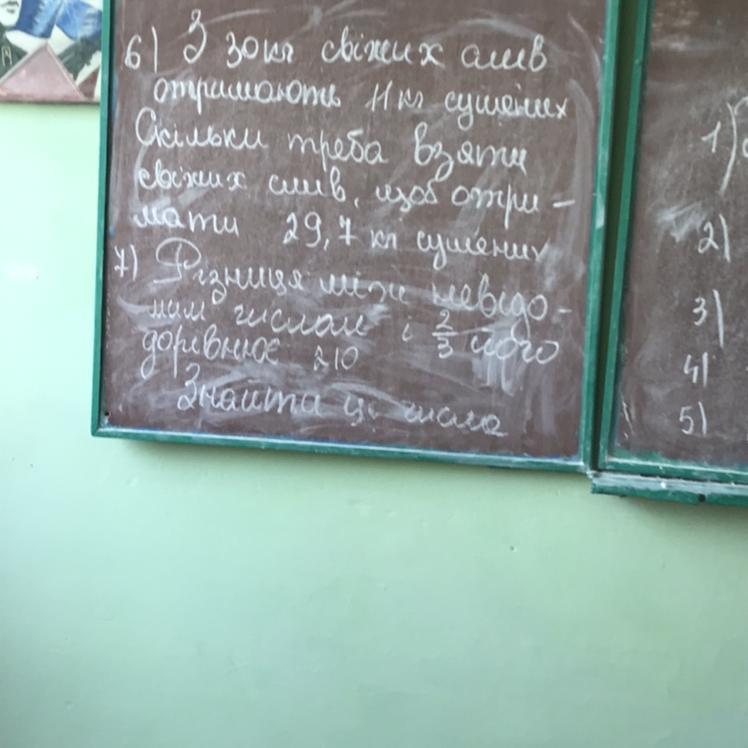 6) З 30 кг свіжих слив
отримають 11 кг сушених
Скільки треба взяти
свіжих слив, щоб отри-
мати 29,7 кг сушених
7) Різниця між невідо-
мим числом і 2/3 його
дорівнює 210
Знайти ці числа
1)
2)
3)
4)
5)